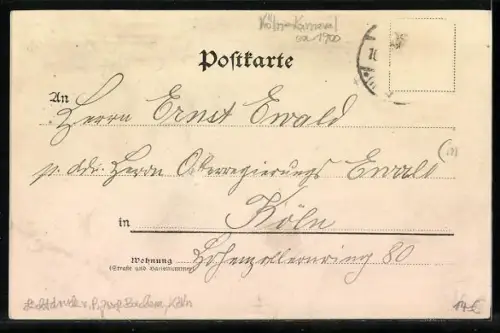 Kölner Karneval
ca 1900
Postkarte
An
Herrn Ernst Ewald
p. Adr. Herrn Oberregierungs Ewald
in Köln
Wohnung
(Straße und Hausnummer)
Hohenzollernring 80
Lichtdruck v. P. Jos. Bachem, Köln
14 €